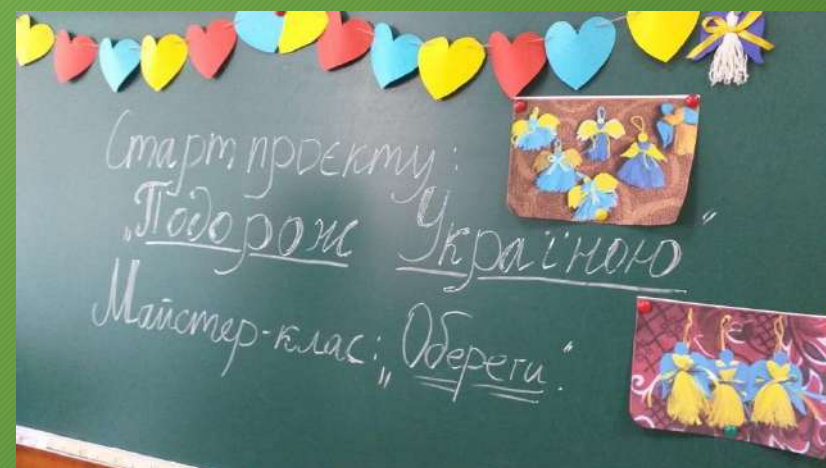 Старт проєкту:
„Подорож Україною"
Майстер-клас: „Обереги".